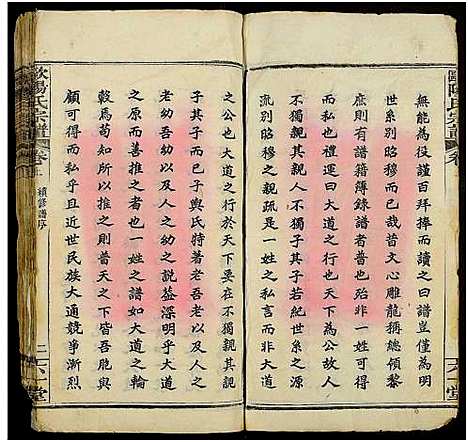 歐陽氏宗譜
卷
六一堂
無能為役謹百拜捧而讀之曰譜豈僅為明
世系別昭穆而已哉昔文心雕龍稱總領黎
庶則有譜籍簿錄譜者普也殆非一姓一人
之私言也大道之行也天下為公故人
不獨親其親不獨子其子若紀世系之源
流別昭穆之親疏是一姓之私言而非大道
之公也大道之行於天下要在不獨親其親
子其子而已子與氏特著老吾老以及人之
老幼吾幼以及人之幼之說益深明乎大道
之所以由而善推之者也一姓之譜如大道之輪
轂焉苟知所以推之則普天之下皆吾胞與
顧可得而私乎且近世民族大通競爭漸烈
歐陽氏宗譜
卷上
續修譜序
二
六一堂